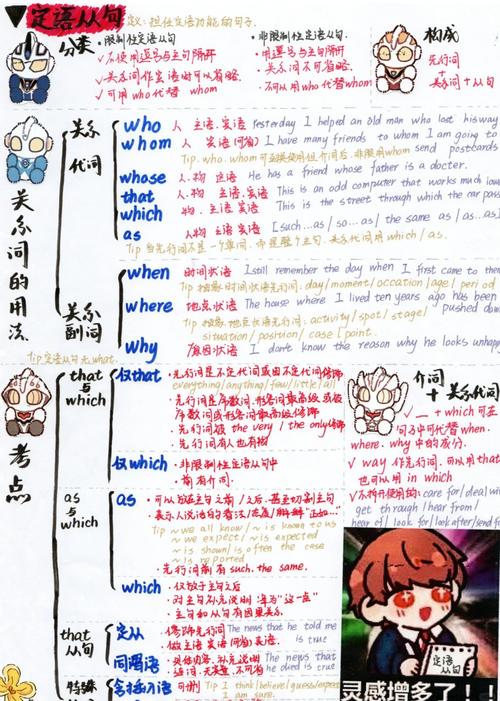 ▼定语从句 定义：担任定语功能的句子.
分类
• 限制性定语从句
✓不使用逗号与主句隔开
✓关系词作宾语时可以省略.
✓可用who代替whom
• 非限制性定语从句
• 用逗号与主句隔开
• 关系词不可省略.
不可以用who代替whom
构成
先行词
+
关系词+从句
关系词的用法
关系代词
who 人 主语、宾语 Yesterday I helped an old man who lost his way
whom 人 宾语(可省) I have many friends to whom I am going to
send postcards
Tip. who. whom可互换使用但介词后、非限用whom
whose 人.物 定语 He has a friend whose father is a docter.
that 人.物 主语、宾语 This is an odd computer that works much
which 物 . 主语、宾语 This is the street through which the car pass
as [such...as / so...as / the same as / as...as]
Tip 当先行词不是一个单词，而是整个主句. 关系代词用 which / as.
关系副词
when 时间状语 I still remember the day when I first came to the
Tip 抽象时间状语先行词: day/moment/occation/age/period
where 地点状语 The house where I lived ten years ago has been
pushed down
Tip 抽象地点状语先行词: activity/spot/stage/
situation/position/case/point.
why 原因状语 I don't know the reason why he looks unhapp
Tip 定语从句无what.
考点
that与which
仅that
• 先行词是不定代词或由不定代词修饰
everything/anything/few/little/all
• 先行词是序数词、形容词最高级或被
序数词或形容词最高级修饰
• 先行词被 the very / the only修饰
• 先行词有人也有物
仅which
• 非限制性定语从句中
• 前有介词.
介词+关系代词
✓ 一 + which可在
句子中可代替when.
where. why 中的成分.
✓ way 作先行词，可以用that
也可以用 in which
✓不拆开使用的: care for/deal wi
get through/hear from/
hear of/ look for/look after/send fo
as与which
as
• 可以与在主句之前/之后、甚至切割主句
• 表示人说话的看法/态度/解释“正如...”
Tip ~ we all know / ~ is known to us
~ we expect / ~ is expected
~ is shown is often the case
~ is reported
• 先行词前有such, the same.
which
• 仅放于主句之后
• 对主句补充说明 译为“这一点”
• 主句和从句有因果关系
that从句
定从 修饰先行词 The news that he told me
is true
• 做主语 宾语(可省)表语.
同谓语
The news that
he died is true
特殊
含插入语 可删 Tip I think/believe/guess/expec
I am sure.
定语从句
灵感增多了！